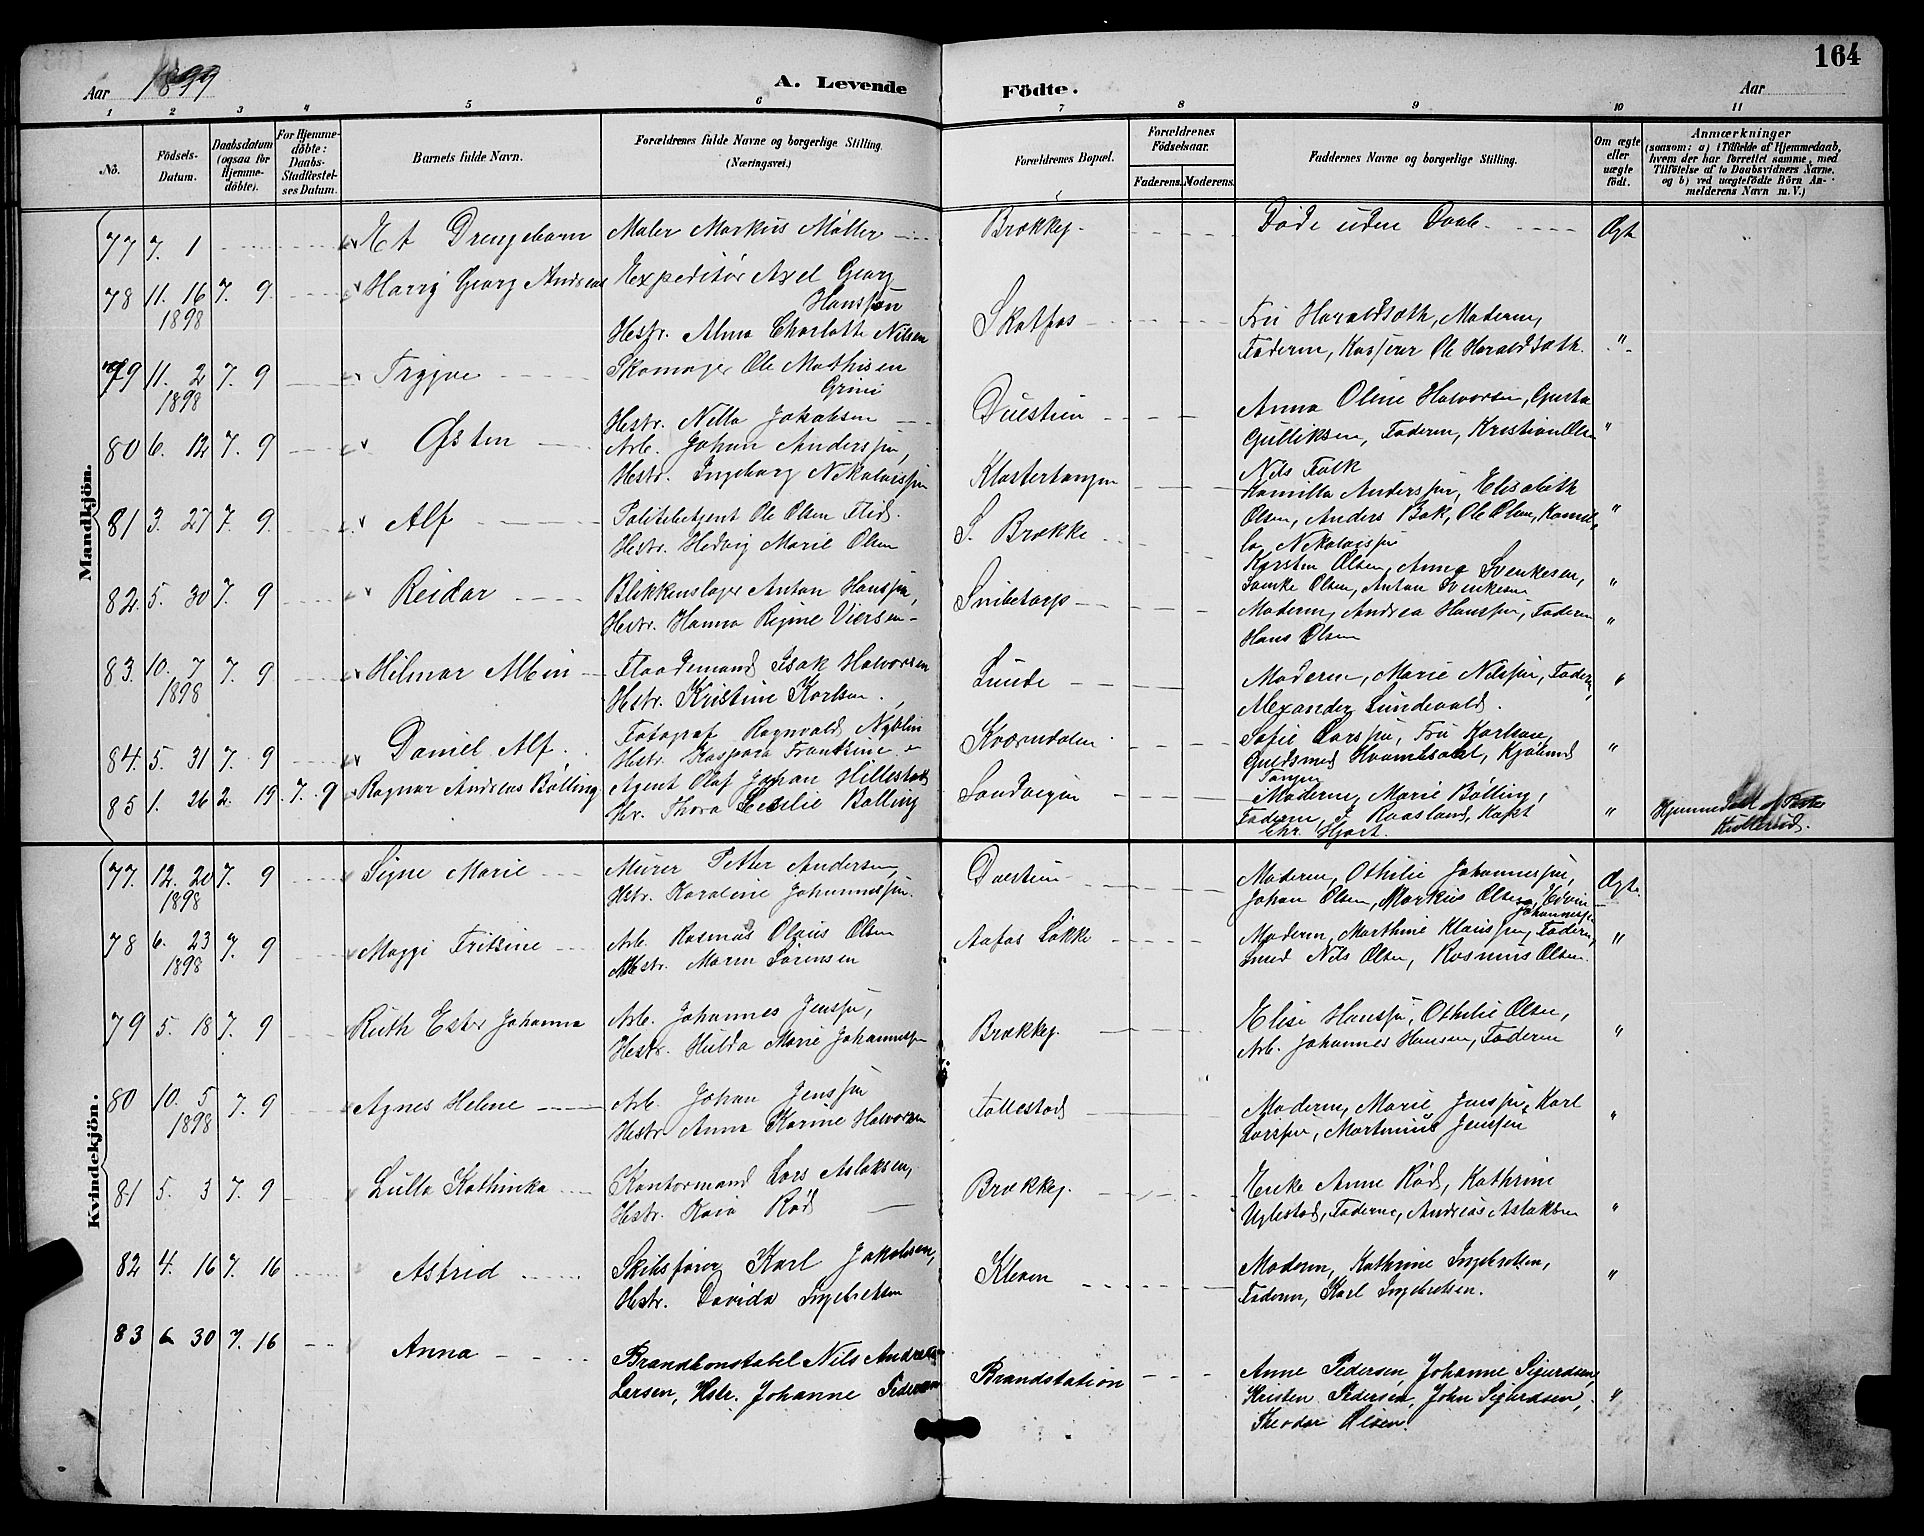 164
Aar 1899
A. Levende Födte.
Aar
1 2 3 4 5 6 7 8 9 10 11
No.
Födsels-Datum.
Daabsdatum (ogsaa for Hjemmedöbte).
For Hjemmedöbte: Daabs-Stadfæstelses Datum.
Barnets fulde Navn.
Forældrenes fulde Navne og borgerlige Stilling. (Næringsvei.)
Forældrenes Bopæl.
Forældrenes Födselsaar.
Faderens. Moderens.
Faddernes Navne og borgerlige Stilling.
Om ægte eller uægte födt.
Anmærkninger
(saasom: a) i Tilfælde af Hjemmedaab, hvem der har forrettet samme, med Tilföielse af to Daabsvidners Navne, og b) ved uægtefödte Börn Anmelderens Navn m. V.)
Mandkjön.
77 7. 1 Et Drengebarn Maler Markus Møller Brekkeg. Døde uden Daab. Ægte
78 11. 16 1898 7. 9 Harry Georg Andreas Expeditør Axel Georg Hanssøn
Hestr. Alma Charlotte Nilsen Skotfos Fru Haraldsæth, Moderen,
Faderen, Kasserer Ole Haraldsæth. "
79 11. 2 1898 7. 9 Trygve Skomager Ole Mathisen Grini
Hestr. Nella Jakobsen Duestien Anna Oline Halvorsen, Gusta
Gulliksen, Faderen, Kristian Olsen "
80 6. 12 7. 9 Østen Arb. Johan Anderssen,
Hestr. Ingeborg Nikolaissen Klostertangen Nils Falk
Kamilla Anderssen, Elisabeth
81 3. 27 7. 9 Alf Politibetjent Ole Olsen Flid.
Hestr. Hedvig Marie Olsen S. Brekke Olsen, Anders Bak, Ole Olsen, Kamilla Nikolaissen "
Karsten Olsen, Anna Svenkesen,
Svenke Olsen, Anton Svenkesen "
82 5. 30 7. 9 Reidar Blikkenslager Anton Hanssen,
Hestr. Hanna Regine Viersen Snibetorp Moderen, Andrea Hanssen, Faderen
Hans Olsen "
83. 10. 7 1898 7. 9 Hilmar Albin Flaademand Isak Halvorsen
Hstr. Kristine Karlsen Lunde Moderen, Marie Nilssen, Faderen,
Alexander Lundevald. "
84. 5. 31 7. 9 Daniel Alf. Fotograf Ragnvald Nyblin
Hestr. Kaspara Frantzine Kværndalen Sofie Larssen, Fru Karlsen,
Guldsmed Kvamtsdal, Kjømand
Tangen "
85 1. 26 2. 19 7. 9 Ragnar Andreas Bølling Agent Olaf Johan Hillestad
Hr. Thora Cesilie Bølling Sandvigen Moderen, Marie Bølling,
Faderen, Raasland, Kapt
Chr. Hjort. " Hjemmedøbt
Kvindekjön.
77. 12. 20 1898 7. 9 Signe Marie Murer Petter Andersen,
Hstr. Karoline Johannessen. Duestien Moderen, Othilie Johannessen,
Johan Olsen, Markus Olsen, Edvin
Johannessen Ægte.
78 6. 23 1898 7. 9 Maggi Fritzine Arb. Rasmus Olaus Olsen
Hestr. Maren Sörensen Aafos Løkke Moderen, Marthine Klaussen, Faderen,
Smed Nils Olsen, Rasmus Olsen. "
79 5. 18 7. 9 Ruth Ester Johanna Arb. Johannes Jenssen,
Hestr. Hulda Marie Johannessen Brekkeg. Elise Hanssen, Othilie Olsen,
Arb. Johannes Hansen, Faderen "
80 10. 5 1898 7. 9 Agnes Helene Arb. Johan Jenssen
Hestr. Anna Karine Halvorsen Follestad Moderen, Marie Jenssen, Karl
Larssen, Martinius Jenssen "
81 5. 3 7. 9 Lulla Kathinka Kontormand Lars Aslaksen,
Hestr. Kaia Rød Brekkeg. Enke Anne Rød, Kathrine
Uglestad, Faderen, Andreas Aslaksen "
82 4. 16 7. 16 Astrid Skibsfører Karl Jakobsen,
Hestr. Davida Ingebretsen Kleven Moderen, Kathrine Ingebretsen,
Faderen, Karl Ingebretsen. "
83 6 30 7. 16 Anna Brandkonstabel Nils Andreas
Larsen, Hstr. Johanne Pedersen Brandstation Anne Pedersen, Johanne Sigurdsen,
Kristen Pedersen, John Sigurdsen,
Theodor Olsen. "